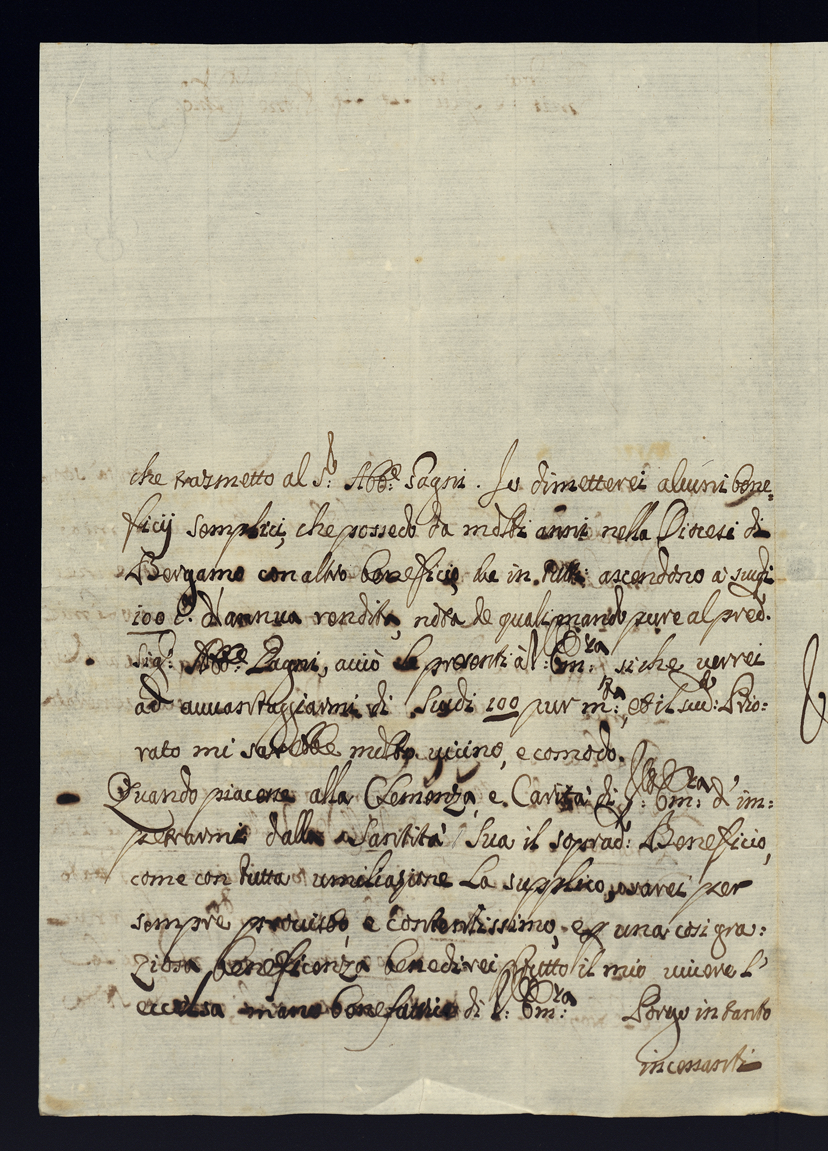 che trasmetto al S.r Abb.e Pagni. Io dimetterei alcuni bene=
ficij semplici, che possedo da molti anni nella Diocesi di
Bergamo con altro beneficio, che in tutti ascendono a scudi
100 d'annua rendita, nota de quali mando pure al pred.o
Sig.r Abb.e Pagni, acciò la presenti à V: Em:za si che verrei
ad avvantaggiarmi di Scudi 100 pur m:ta, et il sud:o Prio:
rato mi sarebbe molto vicino, e comodo.
Quando piacene alla Clemenza, e Carità di V: Em:za d'im:
petrarmi dalla Santità Sua il soprad:o Beneficio,
come con tutta umiliazione La supplico, sarei per
sempre proveisto, e contentissimo, e p una così gra:
ziosa beneficenza benedirei p tutto il mio vivere l'
eccelsa mano benefattrice di V: Em:za Porgo intanto
incessanti